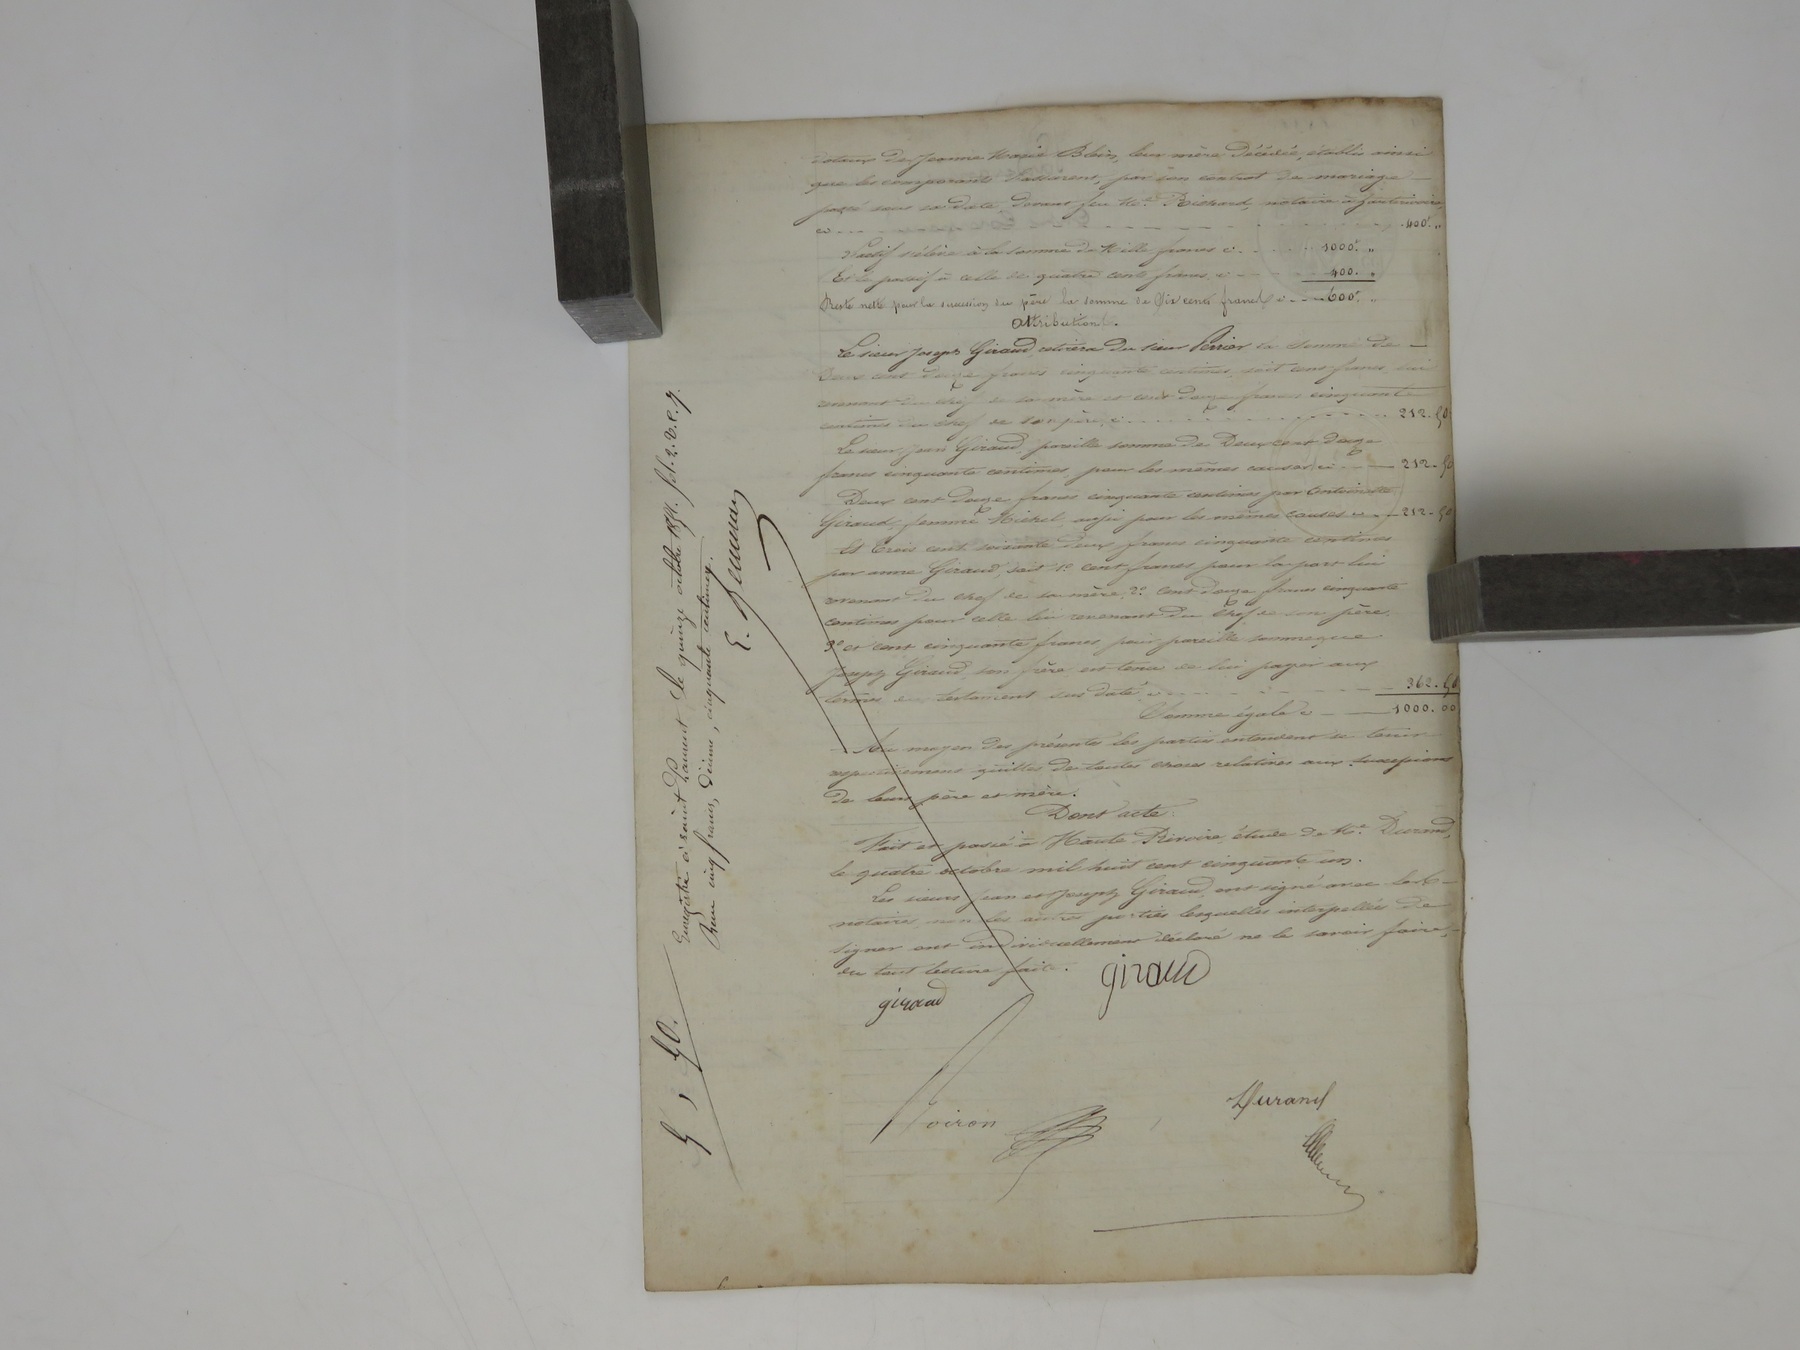 dotaux de Jeanne Marie Blein, leur mère décédée, établis ainsi
que les comparants l'assurent, par son contrat de mariage
passé sous sa date devant feu Me. Richard, notaire à
ci 400f. "
L'actif s'élève à la somme de Mille francs ci 1000f. "
Et le passif à celle de quatre cents francs, ci 400. "
Reste nette pour la succession du père la somme de Six cents francs ci 600f. "
Attributions.
Le sieur Joseph Giraud retirera du sieur Perrier la somme de
Deux cent douze francs cinquante centimes, soit cent francs lui
revenant du chef de sa mère et cent douze francs cinquante
centimes du chef de son père, ci 212. 50
Le sieur Jean Giraud, pareille somme de Deux cent douze
francs cinquante centimes, pour les mêmes causes ci 212. 50
Deux cent douze francs cinquante centimes par Antoinette
Giraud, femme Michel aussi pour les mêmes causes ci 212. 50
Et Trois cent soixante deux francs cinquante centimes
par anne Giraud, soit 1º. cent francs pour la part lui
revenant du chef de sa mère, 2º. cent douze francs cinquante
centimes pour celle lui revenant du Chef de son père
3º et cent cinquante francs pour pareille somme que
Joseph Giraud, son frère est tenu de lui payer aux
termes du testament sus daté ci 362. 50
Somme égale ci 1000. 00
Au moyen des présentes les parties entendent se tenir
respectivement quittes de toutes choses relatives aux successions
de leurs père et mère.
Dont acte.
Fait et passé à Haute Rivoire, étude de Me. Durand,
le quatre octobre mil huit cent cinquante un.
Les sieurs Jean et Joseph Giraud ont signé avec les
notaires, non les autres parties lesquelles interpellées de
signer ont individuellement déclaré ne le savoir faire,
du tout lecture faite.
giraud
giraud
Durand
Enregistré à saint Laurent le quinze octobre 1851. fol. 2. V. C. 7.
Reçu cinq francs, décime, cinquante centimes.
5, 50.